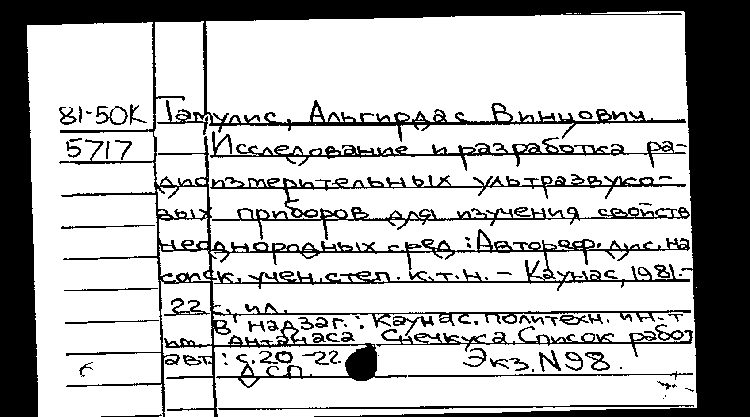 81-50К Тамулис, Альгирдас Винцович.
5717 Исследование и разработка ра-
диоизмерительных ультразвуко-
вых приборов для изучения свойств
неоднородных сред : Автореф. дис. на
соиск. учен. степ. к.т.н. - Каунас, 1981.-
22 с., ил.
В надзаг.: Каунас. политехн. ин-т
им. Антанаса Снечкуса. Список работ
авт.: с. 20-22
Экз. N98.
сп.